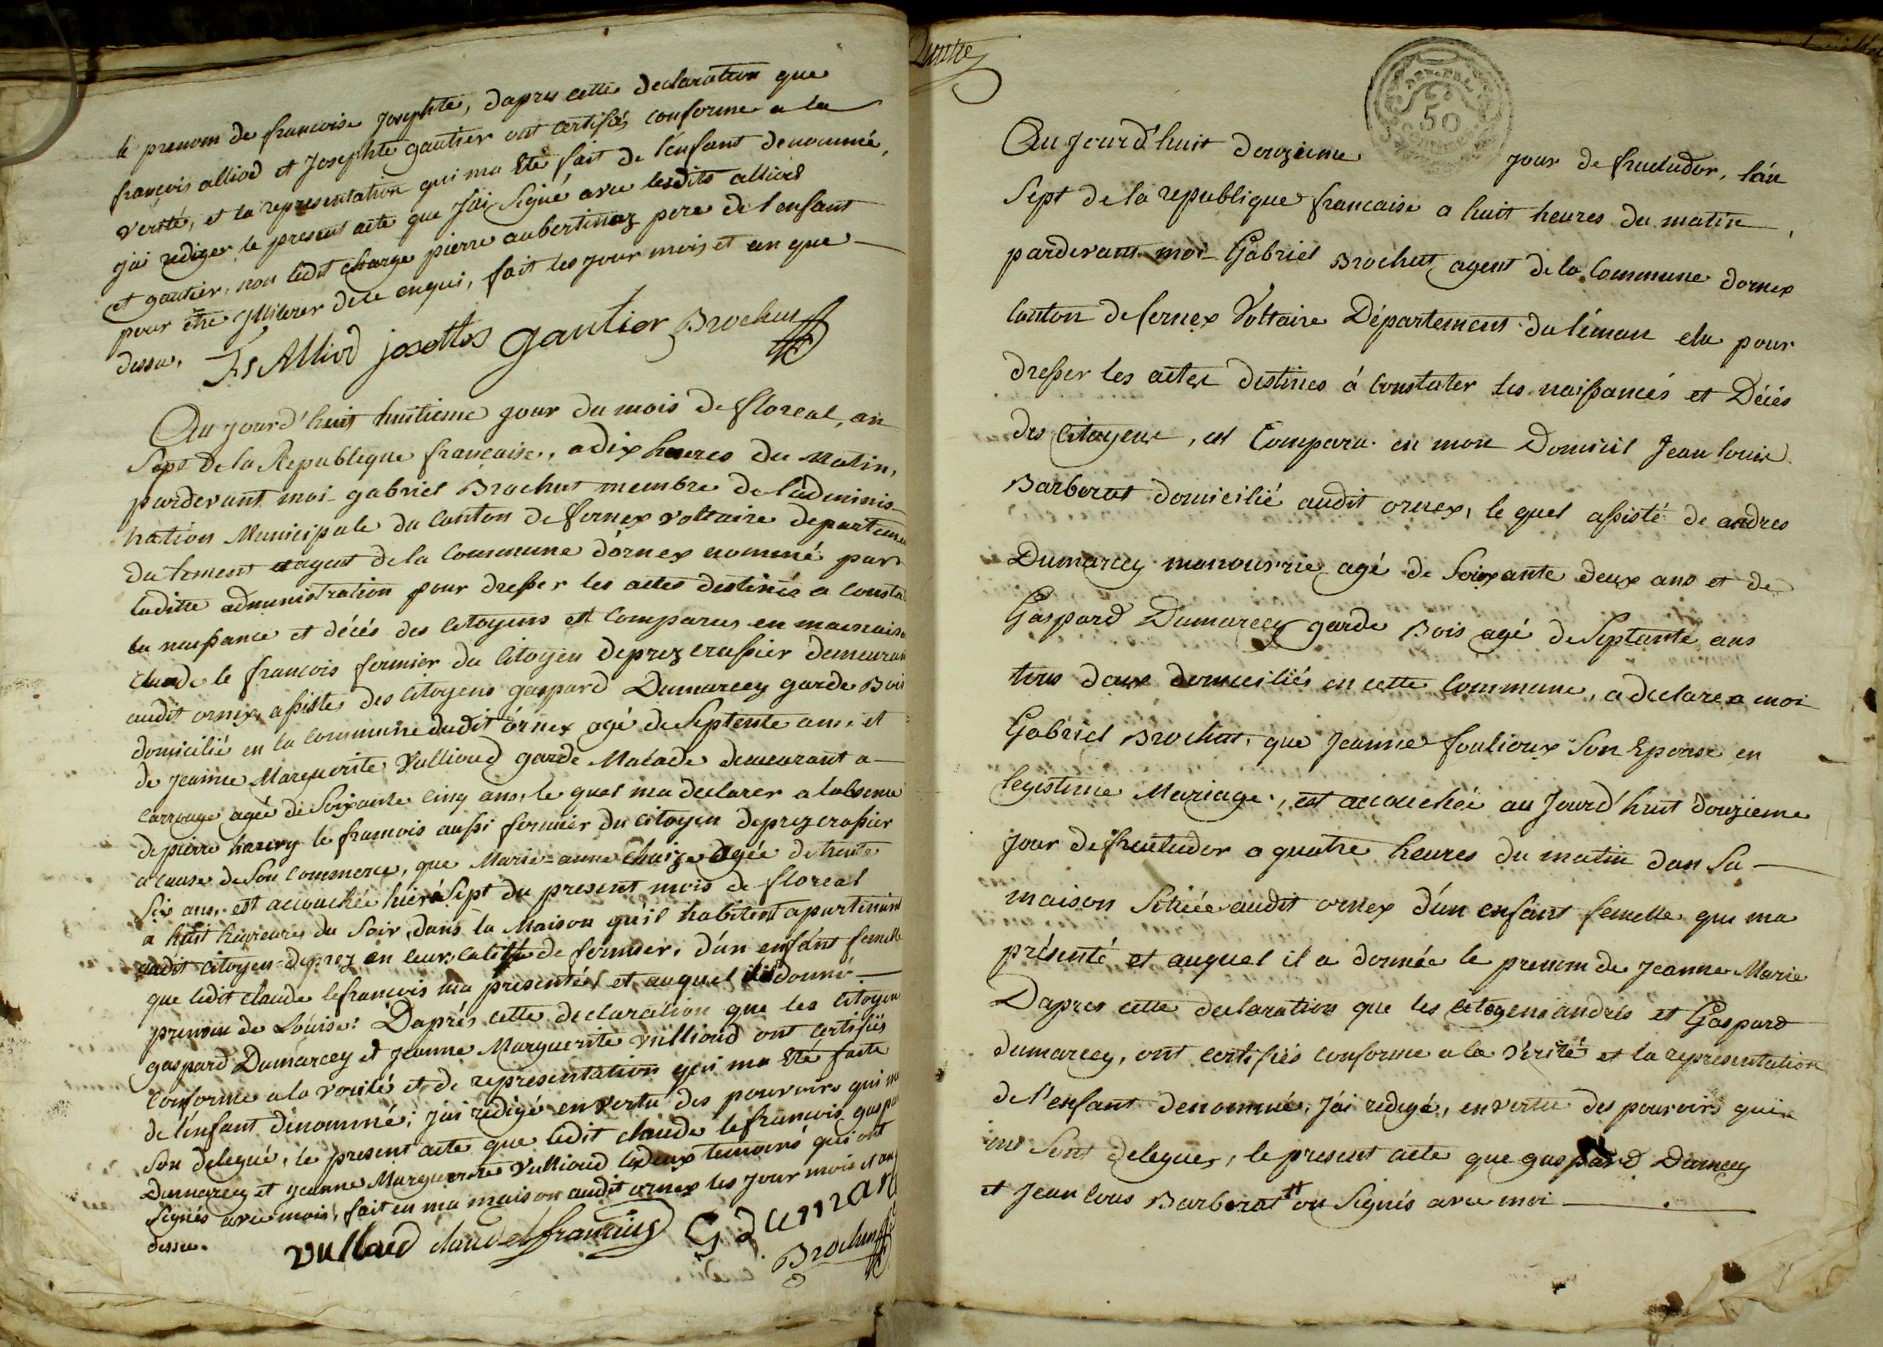 le prenom de francoise Josephte, dapres cette declaration que
françois alliod et Josephte gautier ont certifiés conforme a la
verité, et la representation qui ma Eté fait de l'enfant denommé,
j'ai rediger le present acte que J'ai Signé avec lesdits alliod
et gautier, non ledit pierre aubertinaz pere de l'enfant
pour être de ce enquis, fait les jour mois et an que
dessu.
frs Alliod josettes gautier Brochut
Au jourd'huit huitieme jour du mois de floreal, an
Sept de la Republique française, a dix heures du Matin,
pardevant moi gabriel Brochut membre de l'adminis-
tration Municipale du Canton de fernex voltaire departeme
du lement et agent de la Commune d'ornex nommé par
laditte administration pour dresser les actes destinés a consta
la naissance et décès des Citoyens est Comparus en ma maiso
Claude le francois fermier du Citoyen deprez crassier demeuran
audit ornex, assistés des Citoyens gaspard Dumarcey garde Bois
domicilié en la Commune dudit ornex agé de Septente ans, et
de jeanne Marguerite Vullioud garde Malade demeurant a
Carrouge agée de Soixante cinq ans, le quel ma declarer a l'absence
de pierre harry le francois aussi fermier du citoyen deprez crassier
a cause de Son Commerce, que Marie-anne Chaize agée de trente
Six ans, est accouchée hier Sept du present mois de floreal
a huit heures du Soir, dans la Maison qu'il habitent apartenant
audit Citoyen deprez en leur calité de fermier, d'un enfant femelle
que ledit claude lefrancois ma presentés et auquel il a donné
prenom de Louise: Daprés cette declaration que les Citoyen
gaspard Dumarcey et Jeanne Marguerite vulliond ont certifiés
conforme a la verité et de representation qui ma Eté faite
de l'enfant dénommé, j'ai rédigé en vertu des pouvoirs qui me
Son delegué, le present acte que ledit claude lefrancois gaspar
Dumarcey et jeanne Marguerite Vulliaud les deux temoins qui ont
Signés avec moi, fait en ma maison audit ornex les jour mois et an
dessu.
vulliaud claude lefrançois G Dumar
Brochut
Au Jourd'huit douzieme jour de fructudor, l'an
Sept de la republique francaise a huit heures du matin,
pardevant moi Gabriel Brochut agent de la Commune dornex
Canton de fernex Voltaire Département du léman elu pour
dresser les actes destines á Constater les naissances et Décés
des Citoyens, est Comparu en mon Domicil Jean louis
Barberat domicilié audit ornex, le quel assisté de andres
Dumarcey manouvrie agé de Soixante deux ans et de
Gaspard Dumarcey garde Bois agé de Septante ans
tous deux domiciliés en cette Commune, a declare a moi
Gabriel Brochut, que Jeanne foulioux Son Epouse en
legistime Mariage, est accouchée au Jourd'huit douzieme
jour de fructudor a quatre heures du matin dan Sa
maison Sitiée audit ornex d'un enfant femelle qui ma
présenté et auquel il a donnée le prenom de Jeanne Marie
Dapres cette declaration que les citoyens andrés et Gaspard
dumarcey, ont certifiés conforme a la Vérité et la representation
de l'enfant denommé, j'ai redigé, en vertu des pouvoirs qui
me Sont deleguer, le present acte que gaspard Dumcey
et Jean lous Barberat on Signés avec moi
50